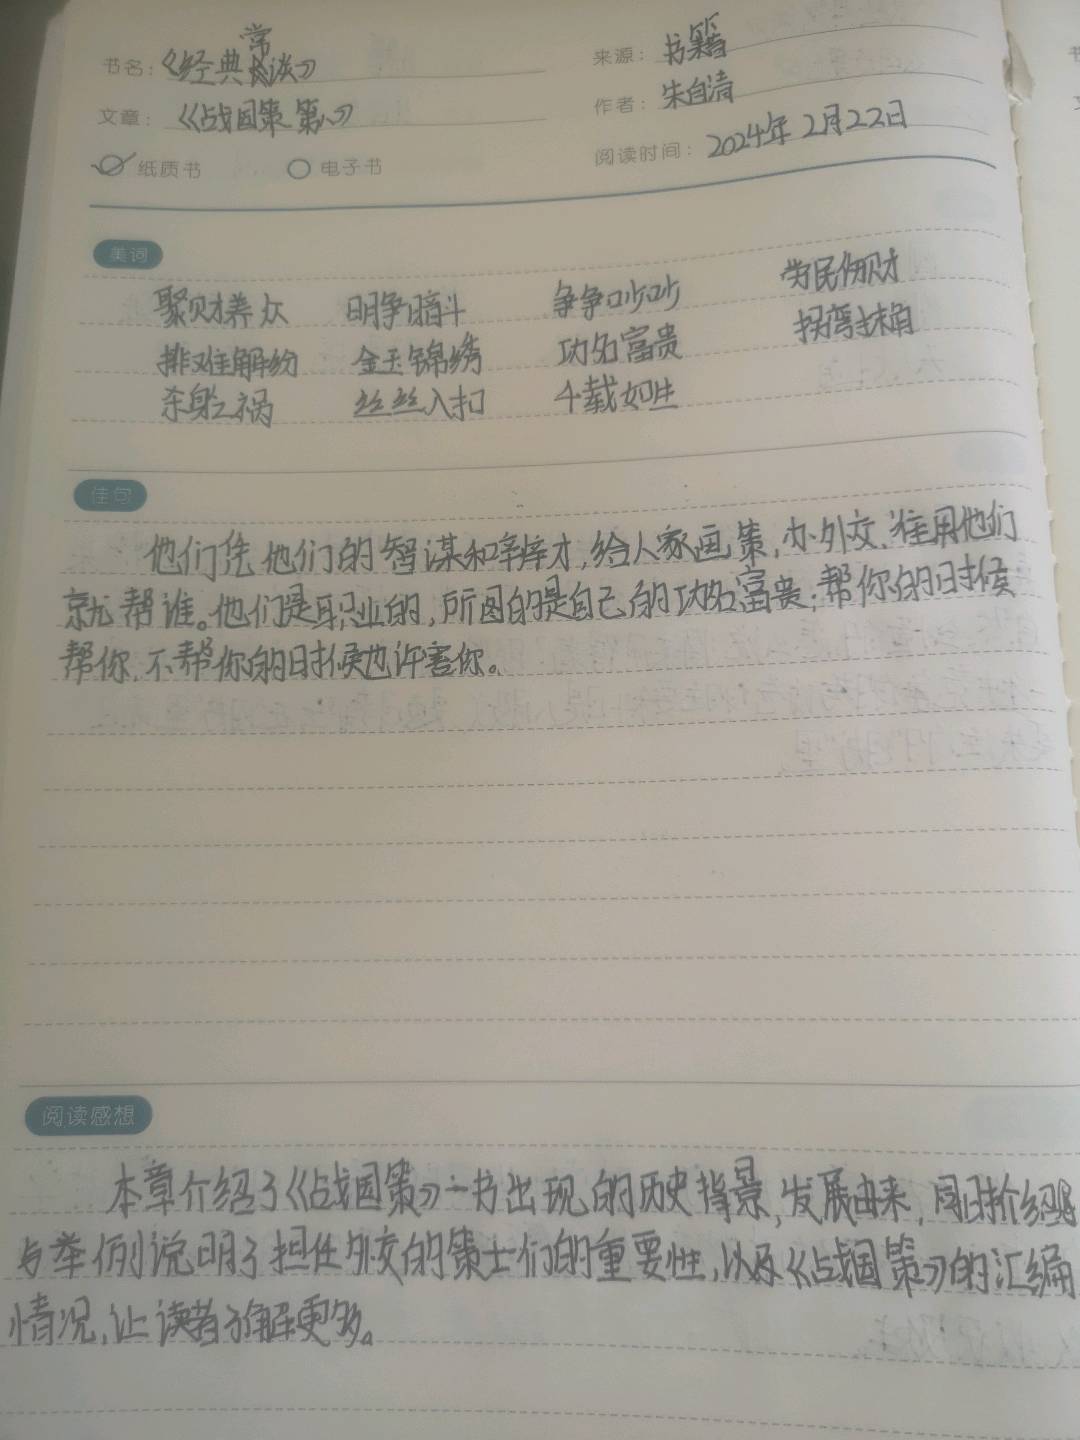 书名：《经典常谈》
来源：书籍
文章：《战国策 第八》
作者：朱自清
纸质书 电子书
阅读时间：2024年2月22日
美词
聚财养众 明争暗斗 争争吵吵 劳民伤财
排难解纷 金玉锦绣 功名富贵 拐弯抹角
杀身之祸 丝丝入扣 千载如生
佳句
他们凭他们的智谋和辩才，给人家画策，办外交，谁用他们
就帮谁。他们是职业的，所图的是自己的功名富贵；帮你的时候
帮你，不帮你的时候也许害你。
阅读感想
本章介绍了《战国策》一书出现的历史背景，发展由来，同时介绍
与举例说明了担任外交的策士们的重要性，以及《战国策》的汇编
情况，让读者了解更多。